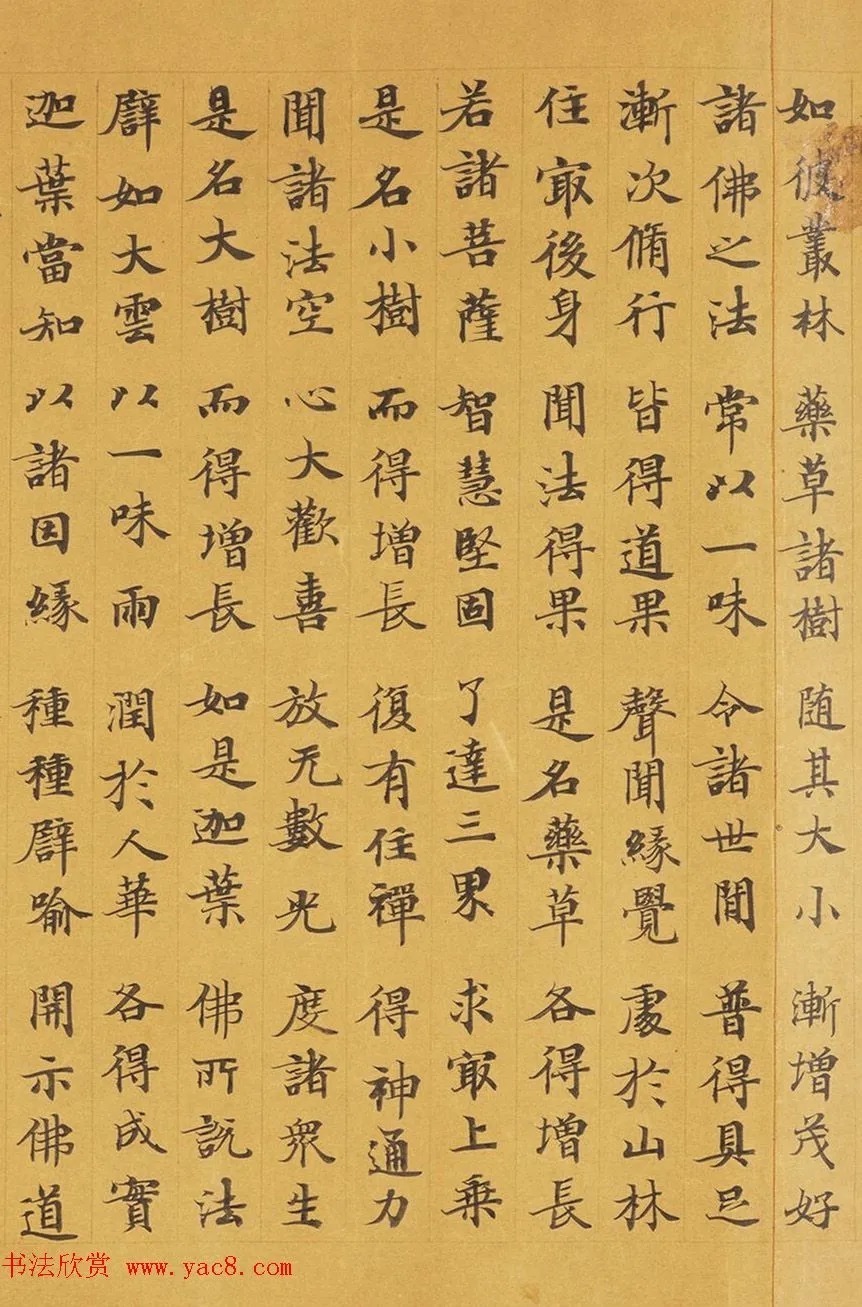 如彼叢林 藥草諸樹 随其大小 漸增茂好
諸佛之法 常以一味 令諸世間 普得具足
漸次脩行 皆得道果 聲聞緣覺 處於山林
住冣後身 聞法得果 是名藥草 各得增長
若諸菩薩 智慧堅固 了達三界 求冣上乗
是名小樹 而得增長 復有住禪 得神通力
聞諸法空 心大歡喜 放无數光 度諸衆生
是名大樹 而得增長 如是迦葉 佛所說法
譬如大雲 以一味雨 潤於人華 各得成實
迦葉當知 以諸因緣 種種譬喻 開示佛道
书法欣赏 www.yac8.com